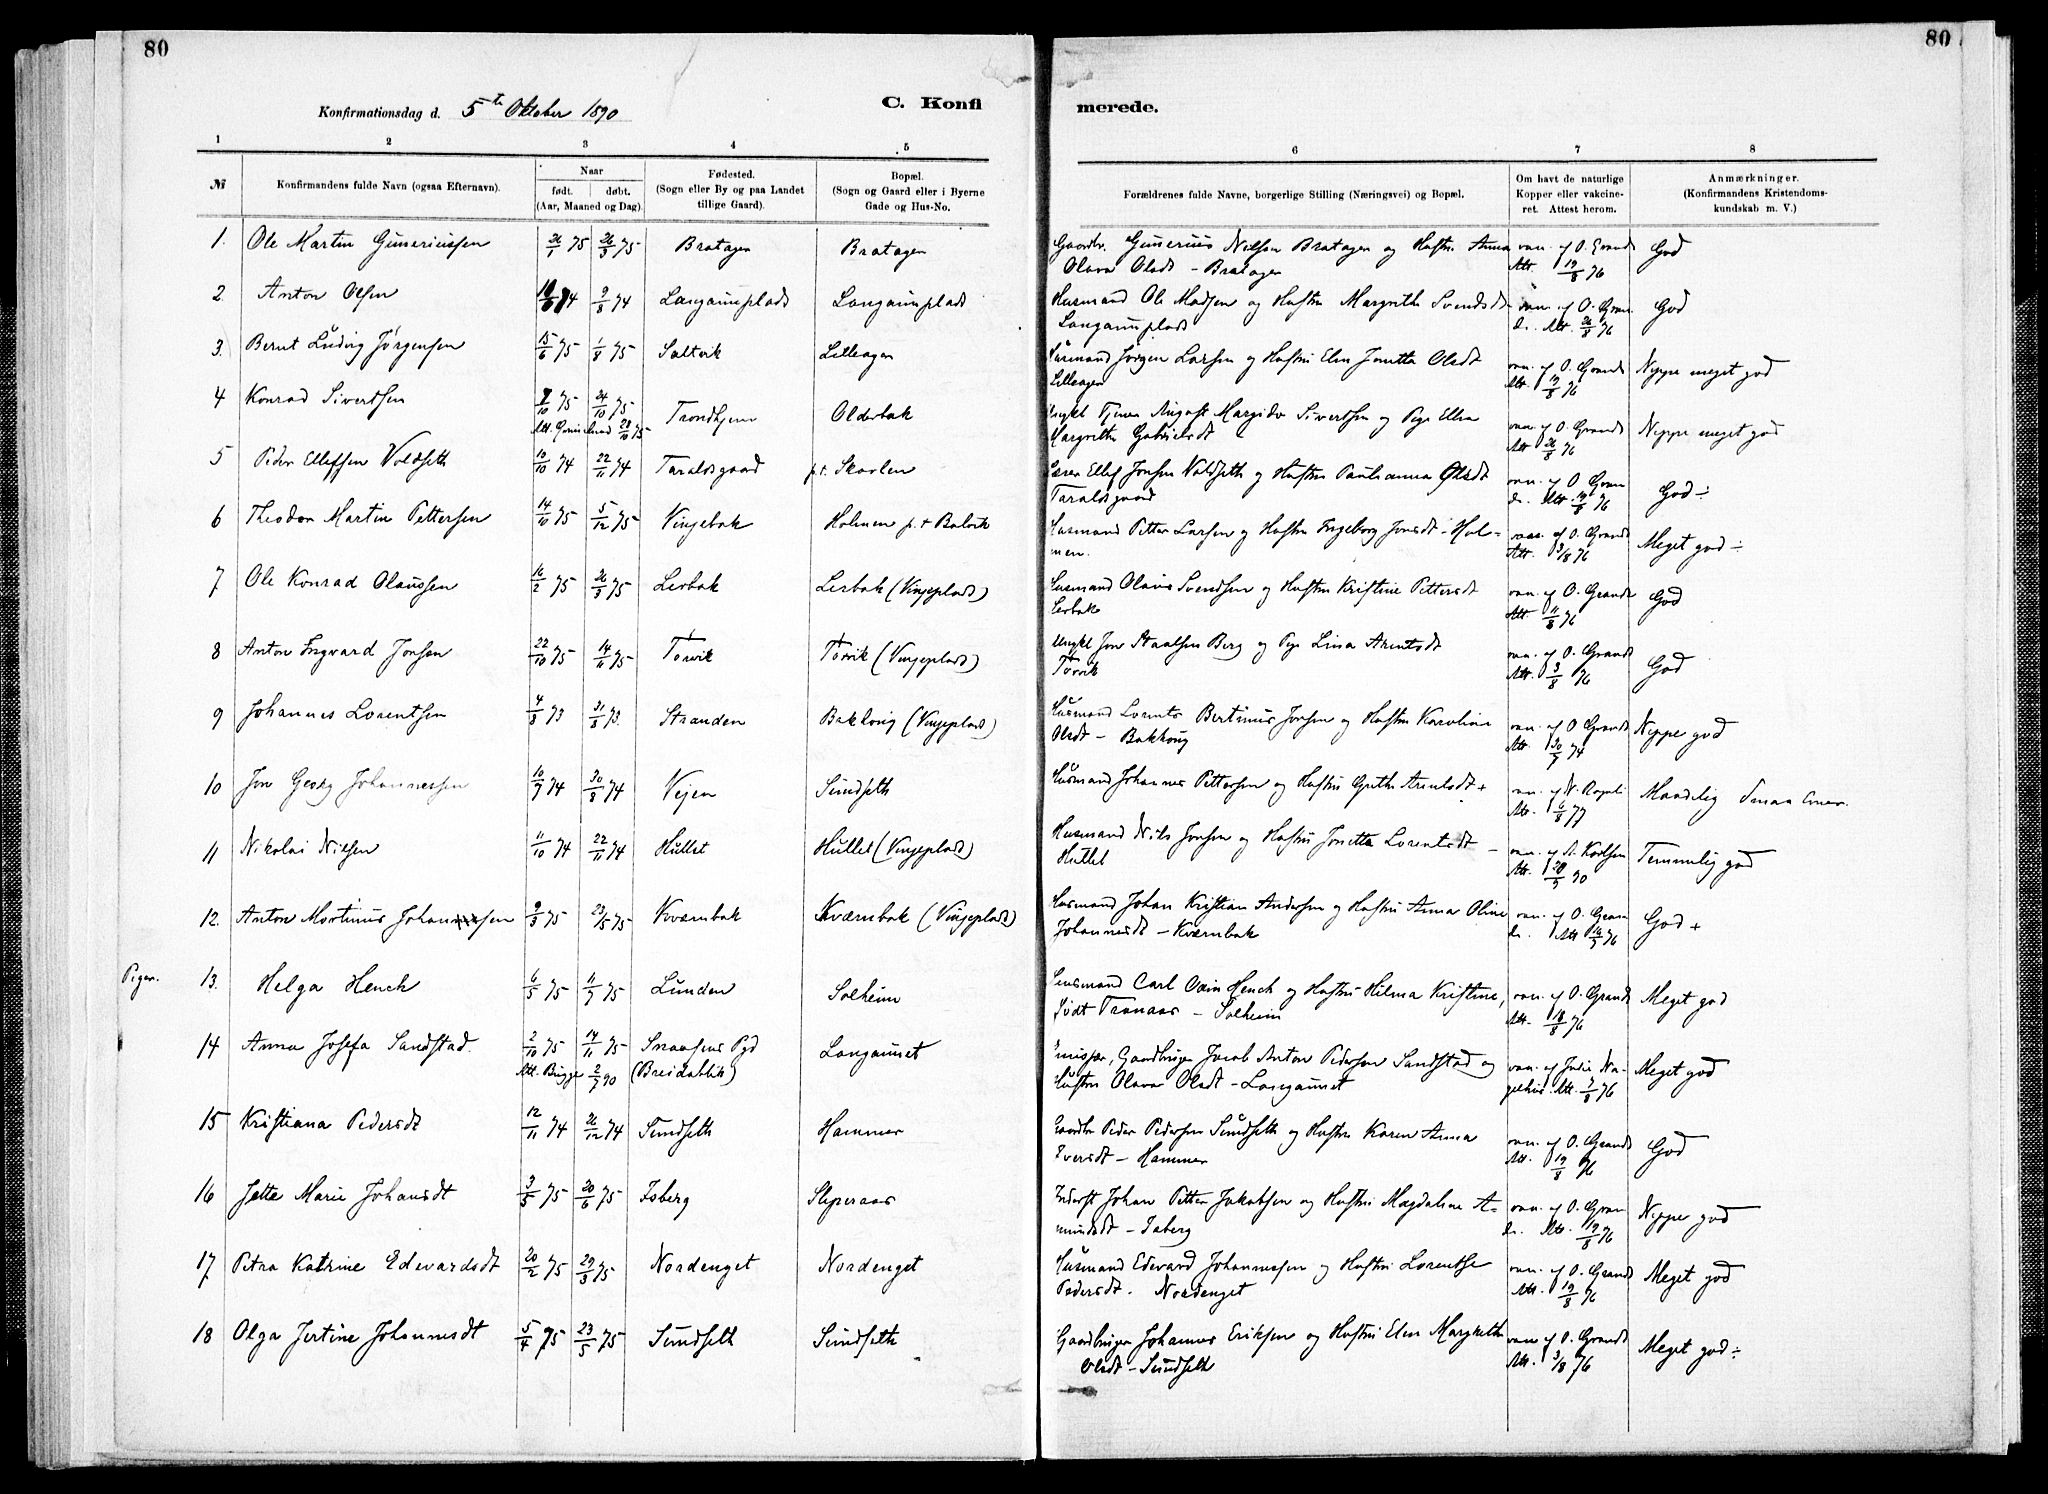 80
80
Konfirmationsdag d. 5te Oktober 1890
C. Konfi
merede.
1 2 3 4 5 6 7 8
№
Konfirmandens fulde Navn (ogsaa Efternavn).
Naar
født. døbt.
(Aar, Maaned og Dag).
Fødested.
(Sogn eller By og paa Landet
tillige Gaard).
Bopæl.
(Sogn og Gaard eller i Byerne
Gade og Hus-No.
Forældrenes fulde Navne, borgerlige Stilling (Næringsvei) og Bopæl.
Om havt de naturlige
Kopper eller vakcine-
ret. Attest herom.
Anmærkninger.
(Konfirmandens Kristendoms-
kundskab m. V.)
1. Ole Martin Guneriussen 26/1 75 26/3 75 Bratagen Bratagen Gaardbr. Gunerius Nilsen Bratagen og Hustru Anna vac. af O. Grande God
Olava Olsdt - Bratagen Att. 19/8 76
2. Anton Olsen 74 9/8 74 Langaunplads Langaunplads Husmand Ole Madsen og Hustru Margrethe Svendsdt vac. af O. Gran God
Langaunplads de. Att. 26/8 76
3. Bernt Ludvig Jørgensen 15/6 75 1/8 75 Saltvik Lilleagen Husmand Jørgen Larsen og Hustru Elen Jonetta Olsdt vac. af O. Grande Neppe meget god
Lilleagen Att. 19/8 76
4 Konrad Sivertsen 7/10 75 24/10 75 Trondhjem Olderbak Ungkl Tjener August Margido Sivertsen og Pige Ellen vac. af O. Grande Neppe meget god
Att. 28/10 75 Margrethe Gabrielsdt Att 26/8 76
5 Peder Elleffsen Voldseth 10/10 74 22/11 74 Taraldsgaard p.t. Skavlen Lærer Ellef Jonsen Voldseth og Hustru Paulianna Olsdt vac. af O. Gran God ÷
Taraldsgaard de. Att. 19/8 76
6 Theodor Martin Pettersen 14/10 75 5/12 75 Vingebak Holmen p.t Balvik Husmand Petter Larsen og Hustru Ingeborg Jonsdt - Hol- vac. af O. Grande Meget god ÷
men. Att. 3/8 76
7 Ole Konrad Olaussen 16/2 75 26/3 75 Lerbak Lerbak (Vingeplads) Husmand Olaus Svendsen og Hustru Kristine Pettersdt vac. af O. Grande God
Lerbak Att. 11/8 76
8 Anton Ingvard Jonsen 22/10 75 14/11 75 Torvik Torvik (Vingeplads) Ungkl Jon Staalsen Berg og Pige Lina Arentsdt vac. af O. Grande God
Torvik Att. 3/8 76
9 Johannes Lorentsen 4/8 73 31/8 73. Stranden Bakkvig (Vingeplads) Husmand Lorents Bertinus Jonsen og Hustru Karoline vac. af O Grande Neppe god
Olsdt - Bakkvig Att. 30/7 74
10 Jon Georg Johannessen 10/7 74 30/8 74 Vejen Sundseth Husmand Johannes Pettersen og Hustru Grethe Arentsdt + vac. af N. Maadelig
Att. 6/8 77
11 Nikolai Nilsen 11/10 74 22/11 74 Hullet Hullet (Vingeplads) Husmand Nils Jonsen og Hustru Jonetta Lorentsdt - vac. af A. Karlsen Temmelig god
Hullet Att. 90
12. Anton Mortinus Johansen 9/3 75 23/5 75 Kværnbak Kværnbak (Vingeplads) Husmand Johan Kristian Andersen og Hustru Anna Oline vac. af O. Gran God +
Johannesdt - Kværnbak de. Att 16/7 76
Piger. 13. Helga Henck 6/5 75 11/7 75 Lunden Solheim Lensmand Carl Odin Henck og Hustru Hilma Kristine, vac. af O. Grande Meget god
født Tranaas - Solheim Att. 18/8 76
14 Anna Josefa Sandstad. 2/10 75 14/11 75 Snaasens Pgd Langaunet Gaardbruger Jacob Anton Pedersen Sandstad og vac. af Julie Na- Meget god
Att. Brügger 2/7 90 (Breidablik) Hustru Olava Olsdt - Langaunet Att. 3/8 76
15 Kristiana Pedersdt 12/11 74 26/12 74 Sundseth Hammer Gaardbr Peder Pedersen Sundseth og Hustru Karen Anna vac. af O. Grande God
Eversdt - Hammer Att. 19/8 76
16 Jette Marie Johansdt 3/5 75 20/6 75 Isberg Sleperaas Inderst Johan Petter Jakobsen og Hustru Magdalene A- vac. af O. Gran Neppe god
mundsdt - Isberg de. Att. 19/8 76
17 Petra Katrine Edevardsdt 20/2 75 29/3 75 Nordenget Nordenget Husmand Edevard Johannessen og Hustru Lorentse vac. af O. Grande Meget god
Pedersdt. Nordenget Att. 19/8 76
18 Olga Jertine Johannesdt 5/4 75 23/5 75 Sundseth Sundseth Gaardbruger Johannes Eriksen og Hustru Elen Margrethe vac. af O. Grande Meget god ÷
Olsdt - Sundseth Att. 3/8 76